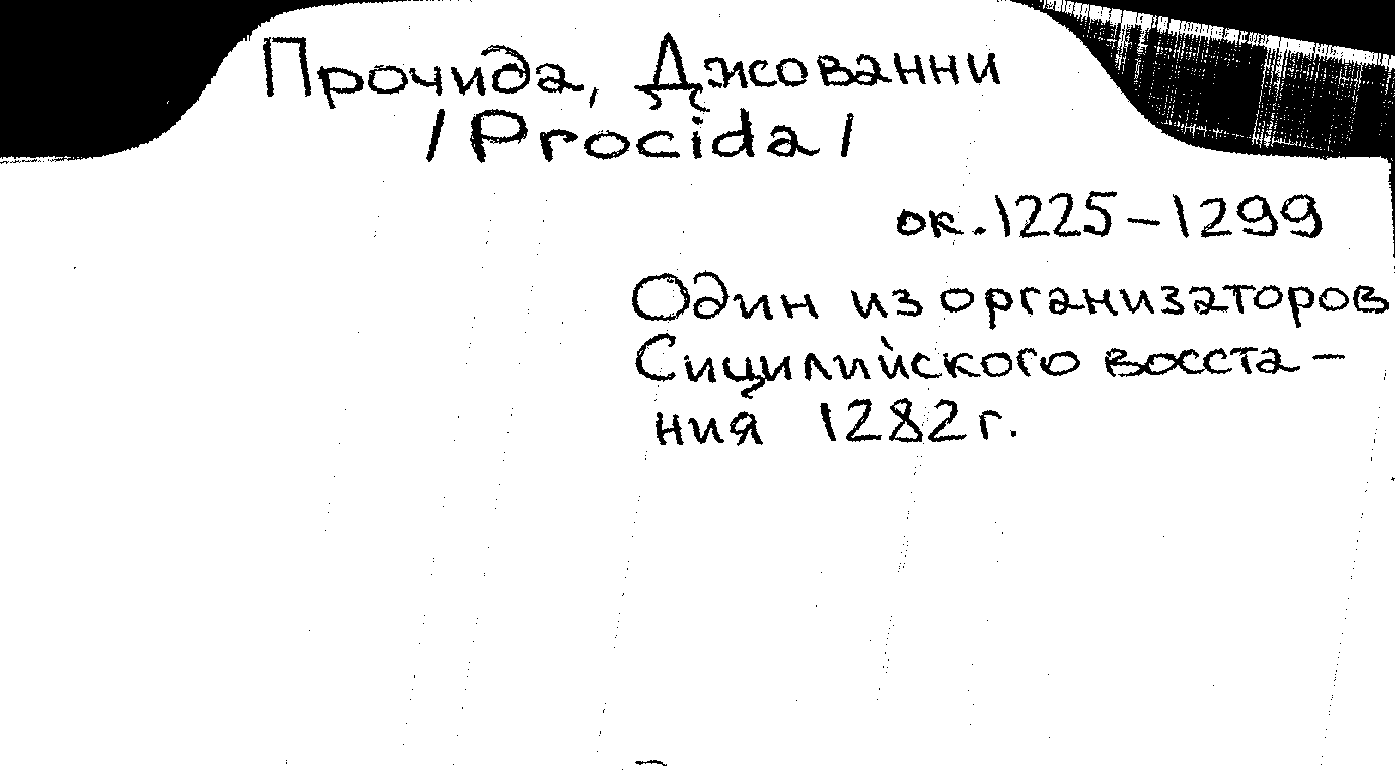 Прочида, Джованни
/Procida/
ок. 1225-1299
Один из организаторов
Сицилийского восста-
ния 1282 г.